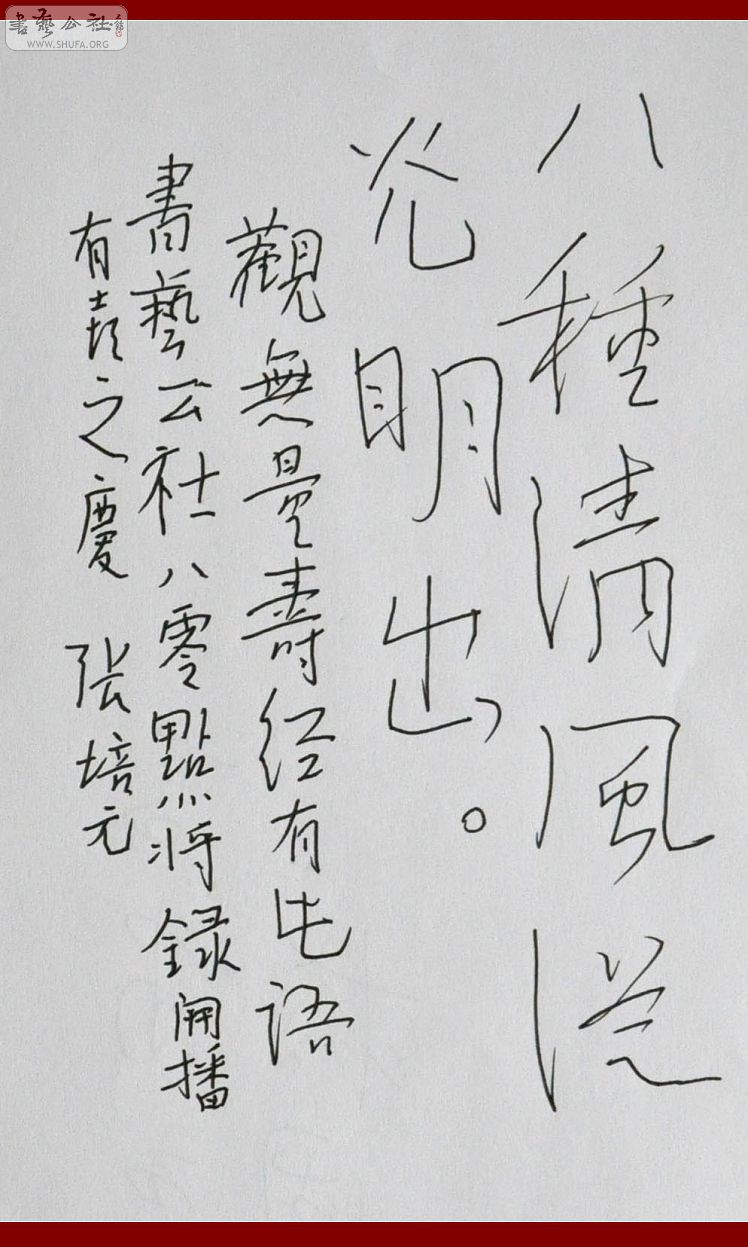 八種清風從
光明出。
觀無量壽经有此语
書藝公社八零點將録開播
有喜之慶 张培元
書藝公社
WWW.SHUFA.ORG